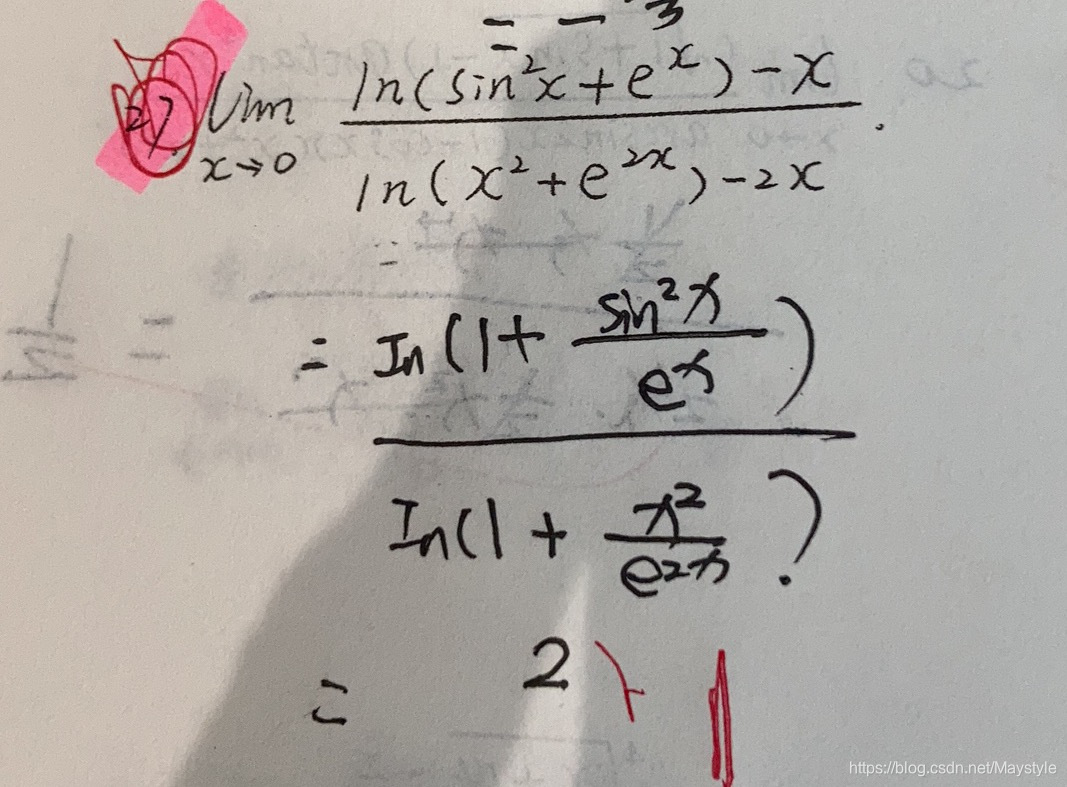 = - 3
27) lim ln(sin²x+eˣ)-x / ln(x²+e²ˣ)-2x .
x→0
= In(1+ sin²x / eˣ)
In(1+ x² / e²ˣ)
= 2 1
https://blog.csdn.net/Maystyle